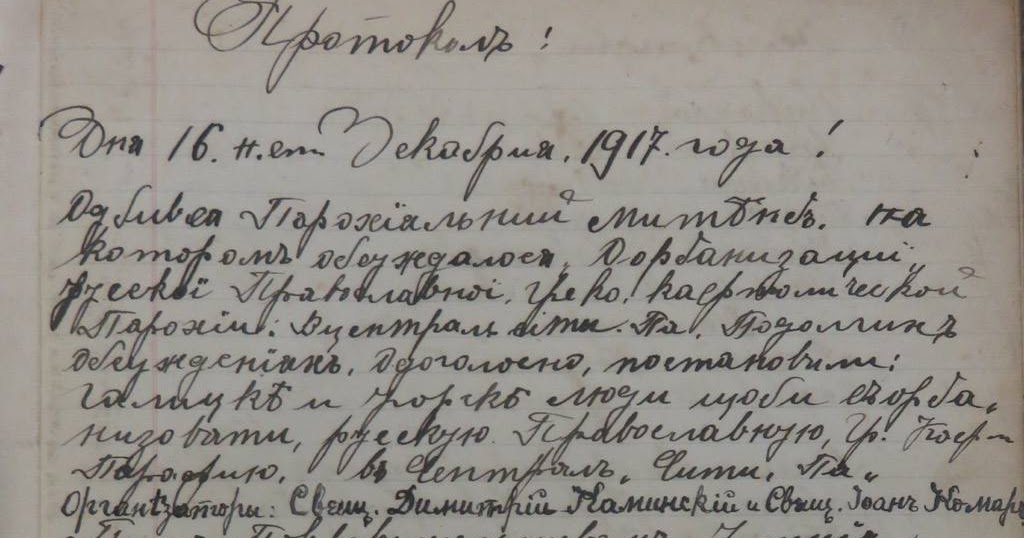 Протоколъ!
Дня 16. н.ст. Декабрия. 1917. года!
Одбився Парохіальний митѣнбъ. на
котором обсуждалося, Ѻорбанизации,
руской Православной, Греко, кафтолической
Парохіи: Вцентраль сіти. Па. Подолгих
обсужденіахъ, одоголосно, постановили:
Галицкѣ и Угорскѣ люди щоби съорба„
низовати, рускую Православную, Гр. Кафт
Парафию, въ Централъ„ Сити, Па„
Органѣзаторы: Свящ. Димитрій Каминскій и Свящ. Іоанъ Комар